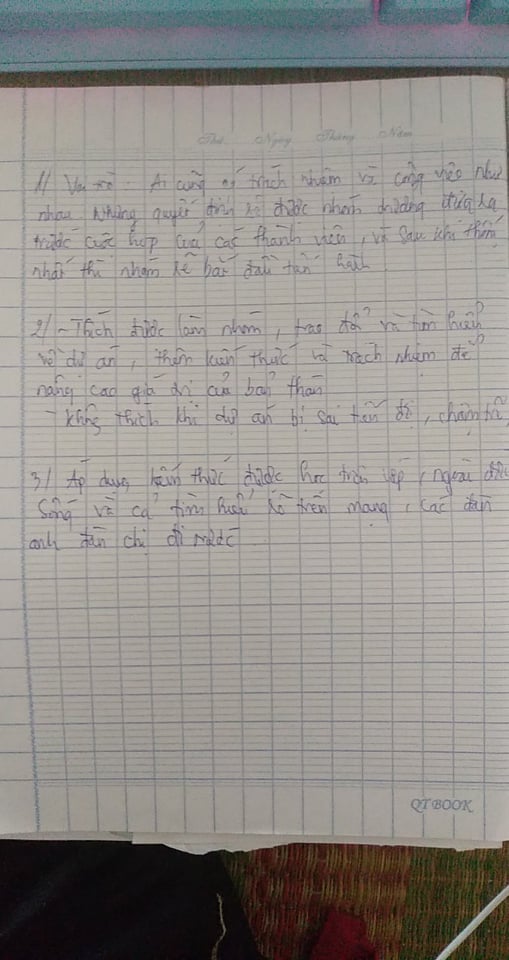 Thứ Ngày Tháng Năm
1/ Vai trò: Ai cũng có trách nhiệm và công việc như
nhau. Những quyết định sẽ được nhóm trưởng đưa ra
trước cuộc họp của các thành viên, và sau khi thống
nhất thì nhóm sẽ bắt đầu tiến hành
2/ - Thích được làm nhóm, trao đổi và tìm hiểu
về dự án, thêm kiến thức và trách nhiệm để
nâng cao giá trị của bản thân
- không thích khi dự án bị sai tiến độ, chậm trễ
3/ Áp dụng kiến thức được học trên lớp, ngoài đời
sống và cả tìm hiểu trên mạng, các đàn
anh đàn chị đi trước
QT BOOK